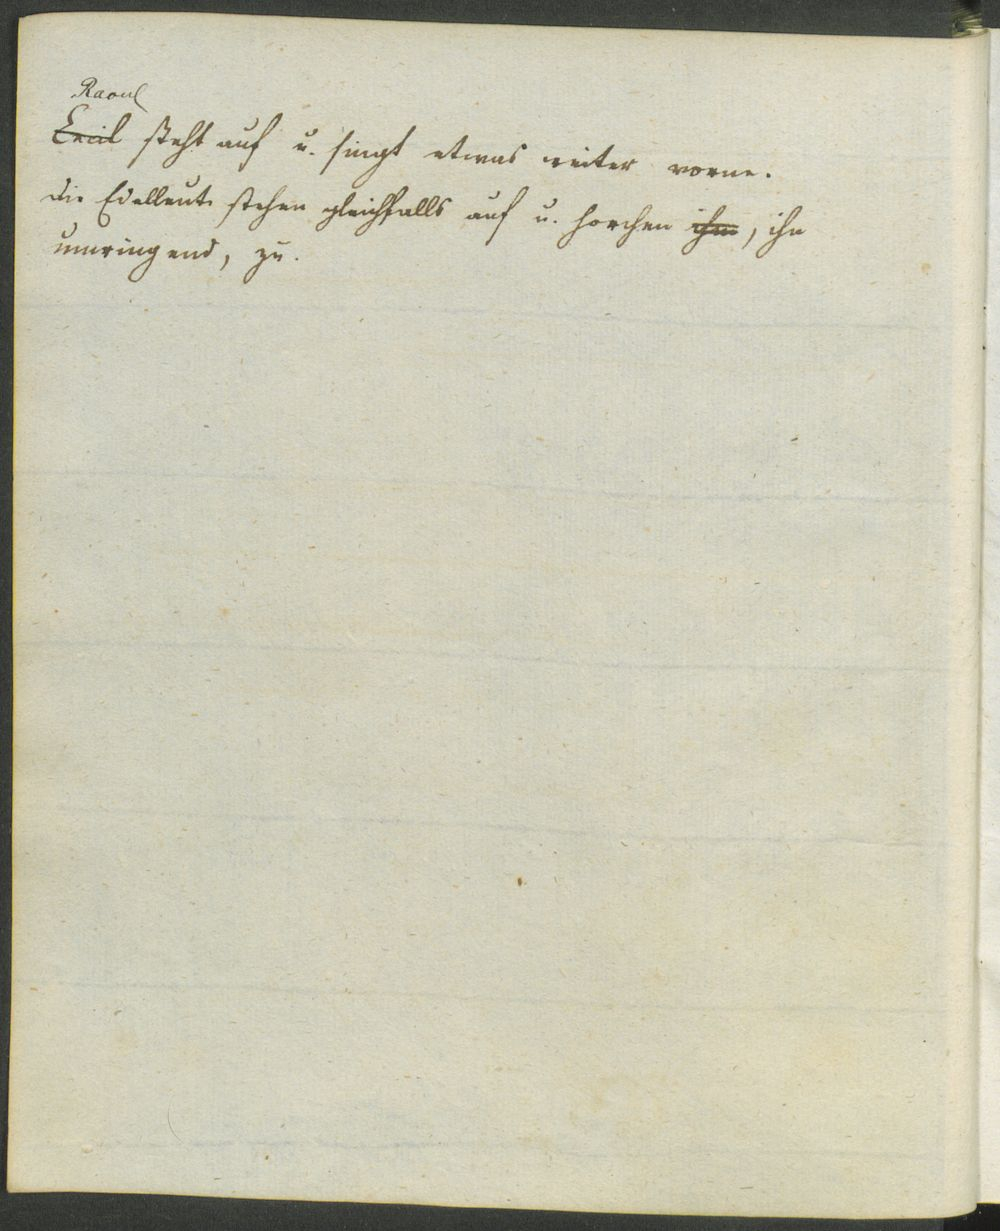 Raoul
Cecil steht auf u. singt etwas weiter vorne.
die Edelleute stehen gleichfalls auf u. horchen ihm, ihn
umringend, zu.